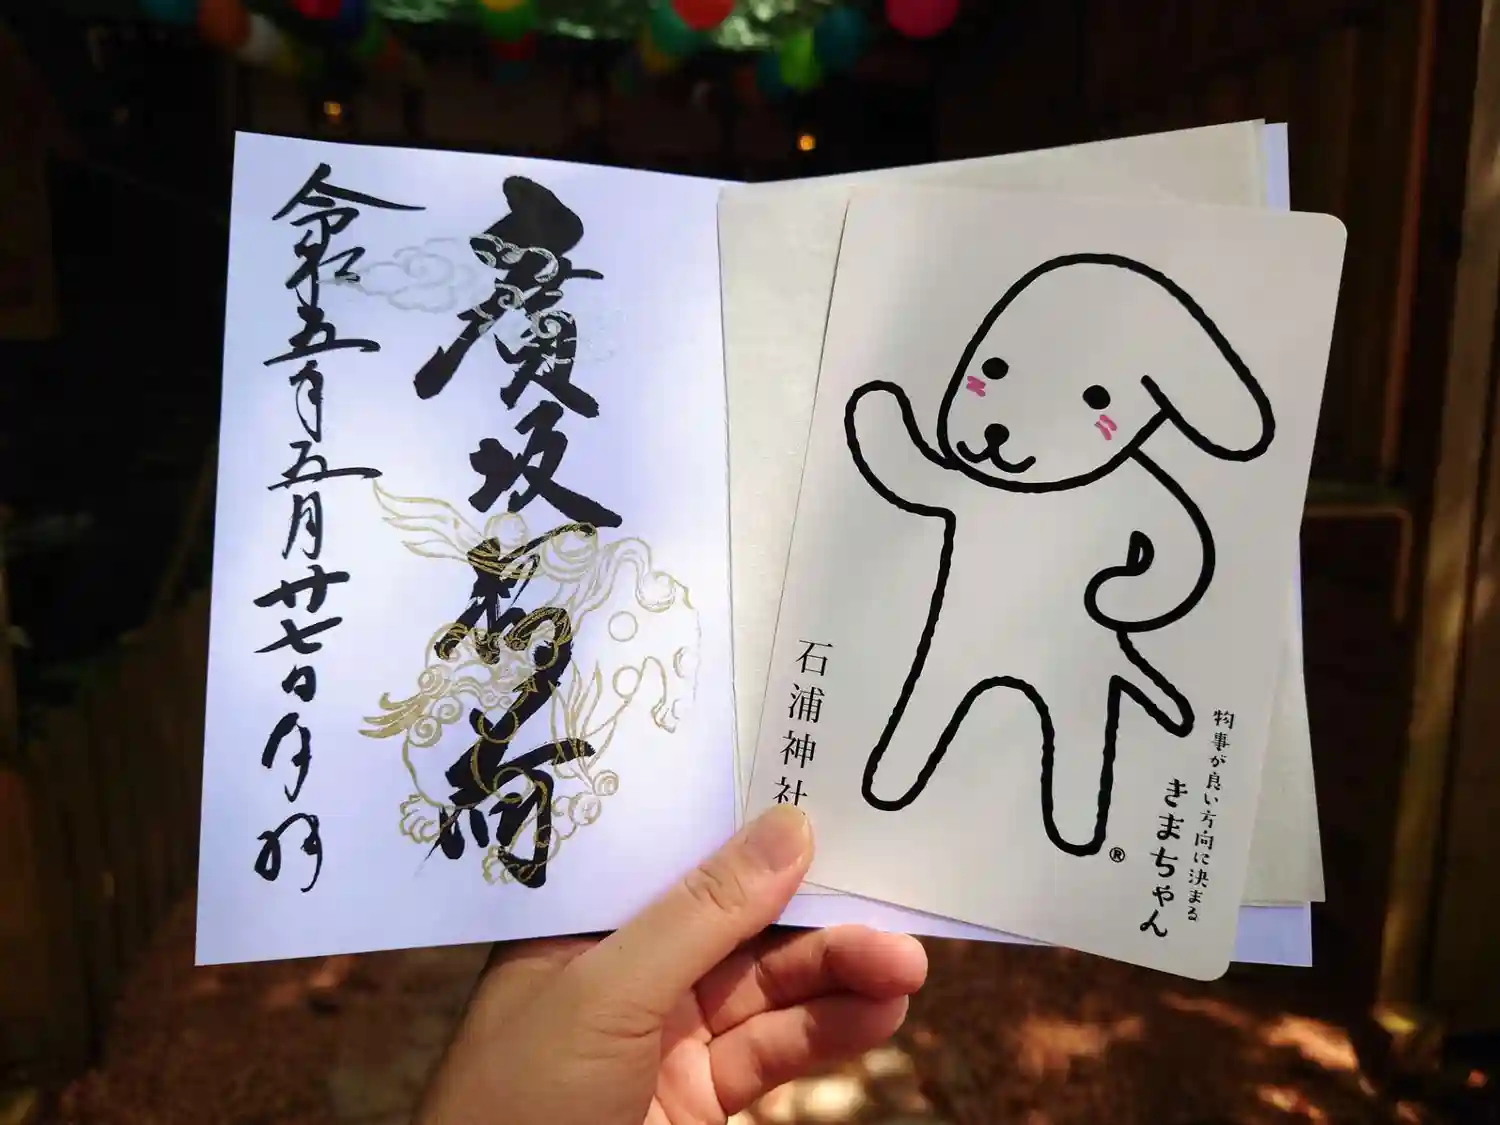 廣坂稲荷
令和五年五月廿七日
石浦神社
物事が良い方向に決まる
きまちゃん
®